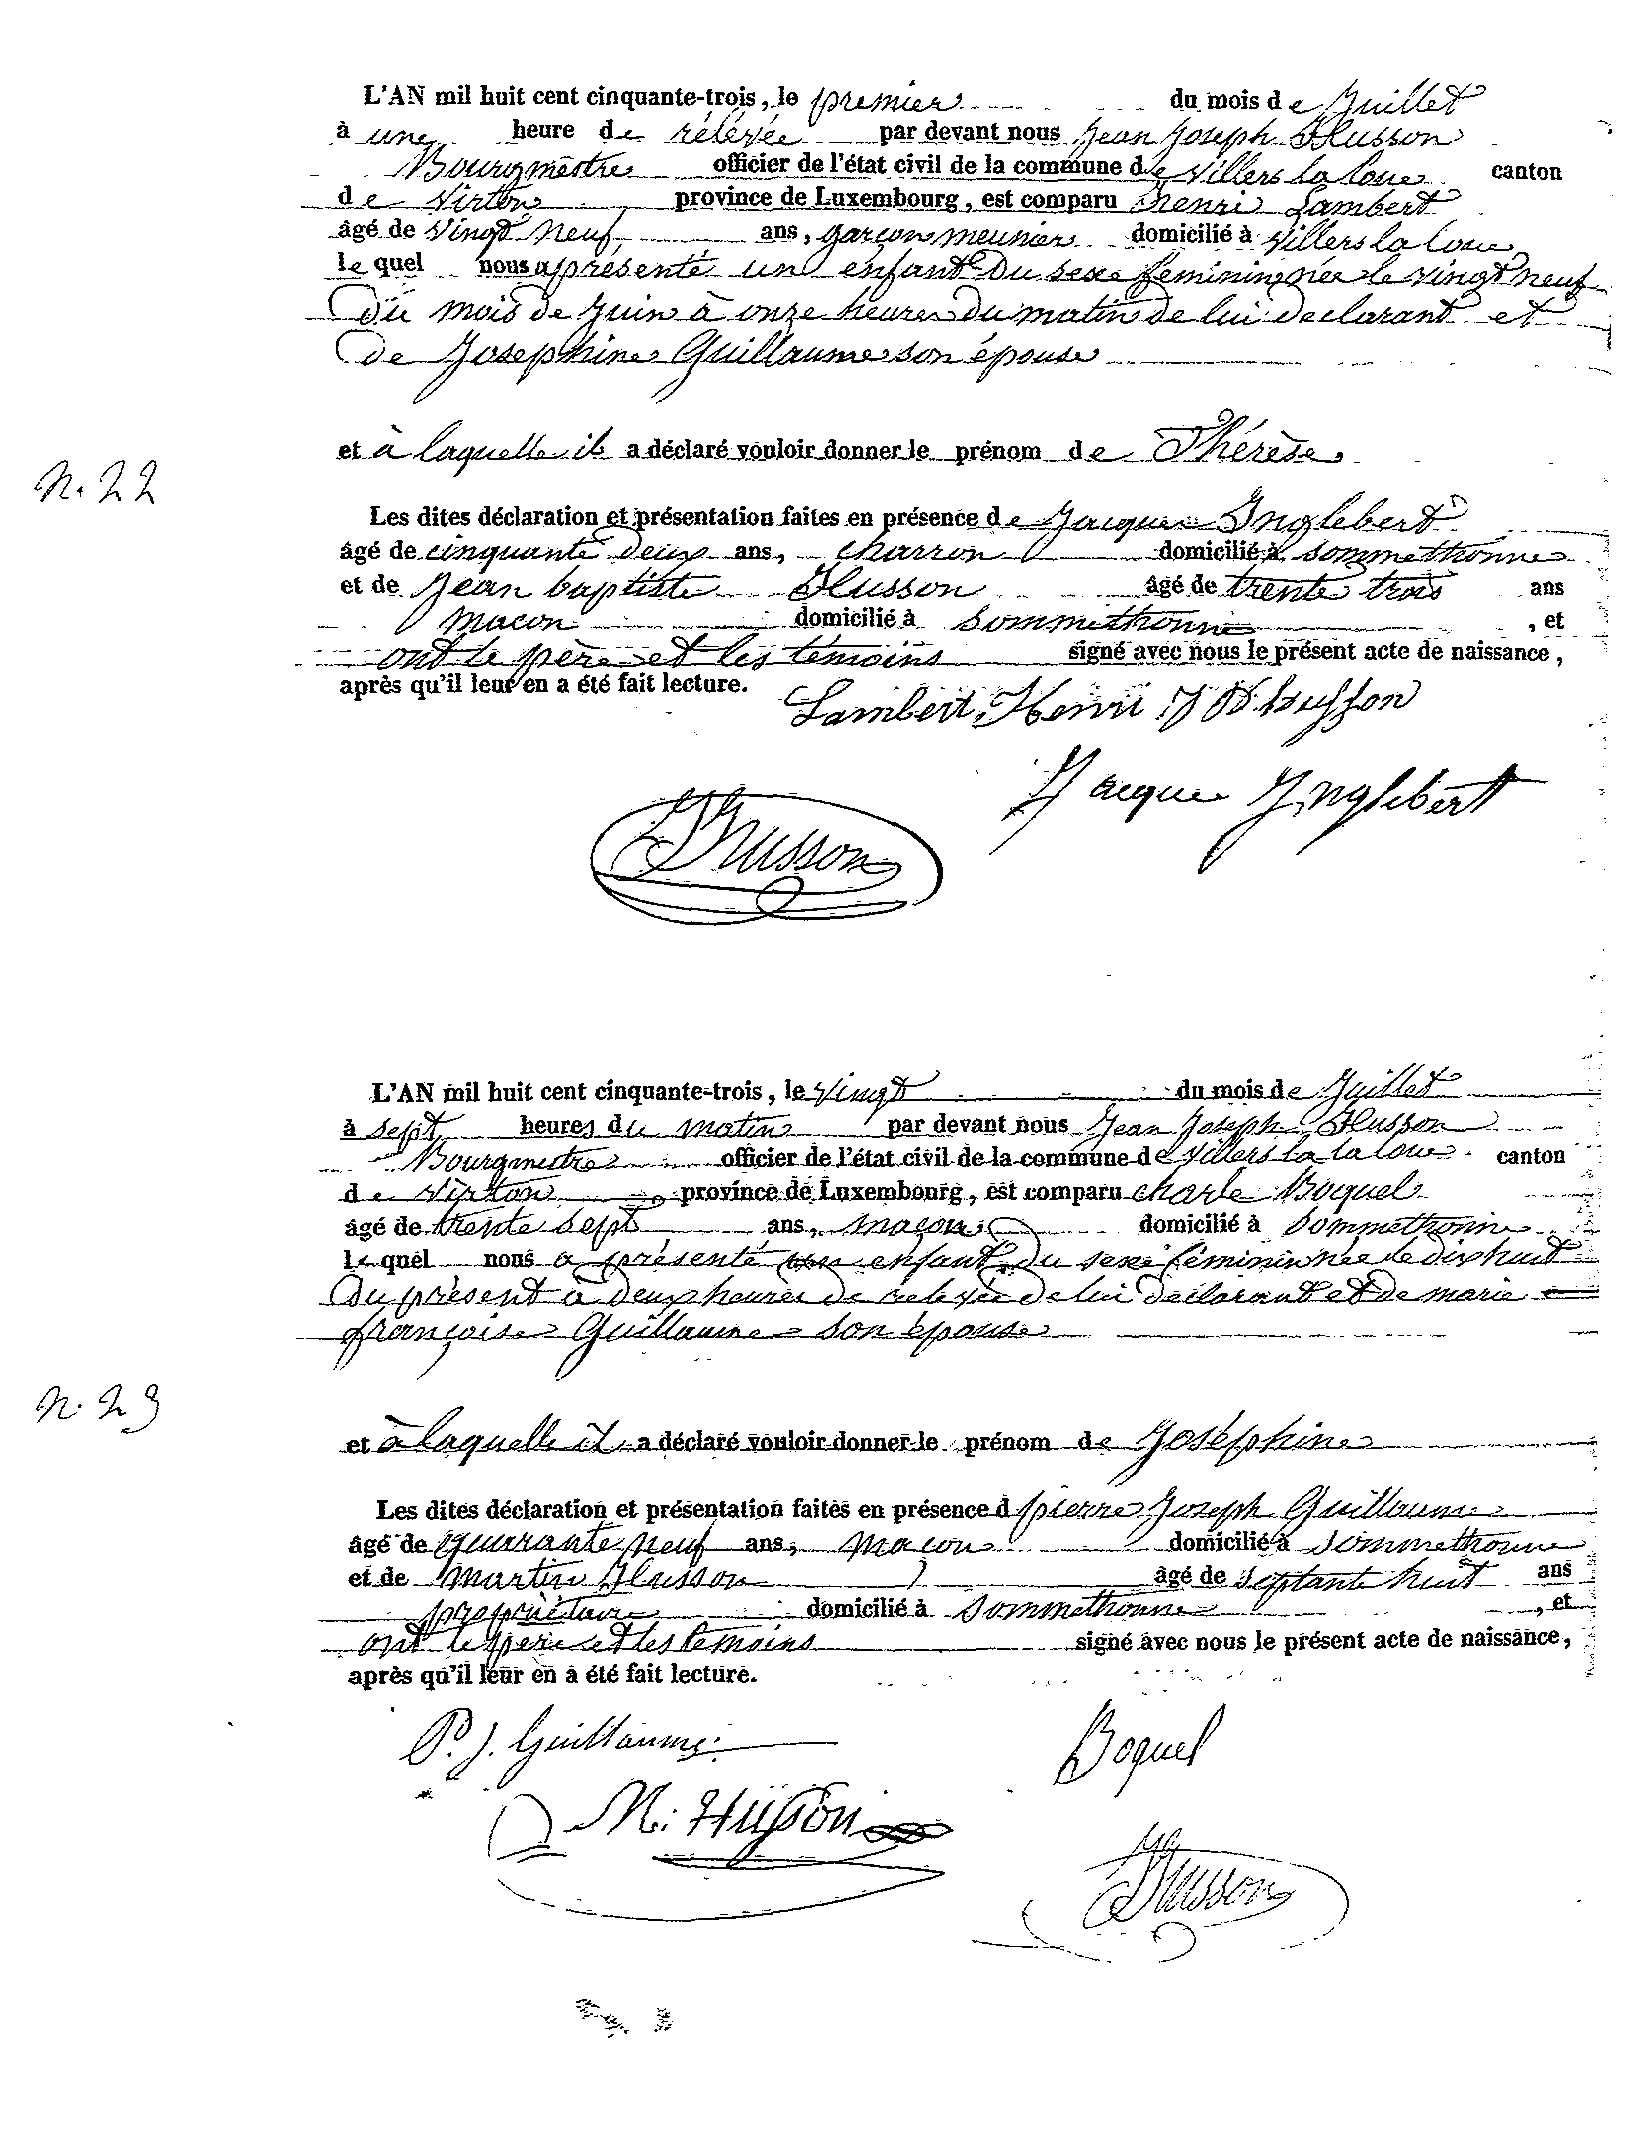 L'AN mil huit cent cinquante-trois, le premier du mois de Juillet
à une heure de rélévée par devant nous Jean Joseph Husson
Bourgmestre officier de l'état civil de la commune de Villers la loue canton
de Virton province de Luxembourg, est comparu Henri Lambert
âgé de vingt neuf ans, garçon meunier domicilié à Villers la loue
le quel nous a présenté un enfant du sexe féminin née le vingt neuf
du mois de Juin à onze heures du matin de lui déclarant et
de Josephine Guillaume son épouse
et à laquelle il a déclaré vouloir donner le prénom de Thérèse
N. 22
Les dites déclaration et présentation faites en présence de Jacques Inglebert
âgé de cinquante deux ans, charron domicilié à Sommethonne
et de Jean baptiste Husson âgé de trente trois ans
macon domicilié à Sommethonne, et
ont le père et les témoins signé avec nous le présent acte de naissance,
après qu'il leur en a été fait lecture.
Lambert Henri J B husson
Jacques Inglebert
JJHusson
L'AN mil huit cent cinquante-trois, le vingt du mois de Juillet
à sept heures du matin par devant nous Jean Joseph Husson
Bourgmestre officier de l'état civil de la commune de Villers la la loue canton
de Virton, province de Luxembourg, est comparu charle Boquel
âgé de trente sept ans, maçon domicilié à Sommethonne
le quel nous a présenté un enfant du sexe féminin née le dix huit
du présent à deux heures de relevée de lui déclarant et de marie
françoise Guillaume son épouse
N. 23
et à laquelle il a déclaré vouloir donner le prénom de Joséphine
Les dites déclaration et présentation faites en présence d pierre Joseph Guillaume
âgé de quarante neuf ans, macon domicilié à Sommethonne
et de martin Husson âgé de septante huit ans
propriétaire domicilié à Sommethonne, et
ont le père et les témoins signé avec nous le présent acte de naissance,
après qu'il leur en a été fait lecture.
P. J. Guillaume Boquel
M. Husson
JJHusson